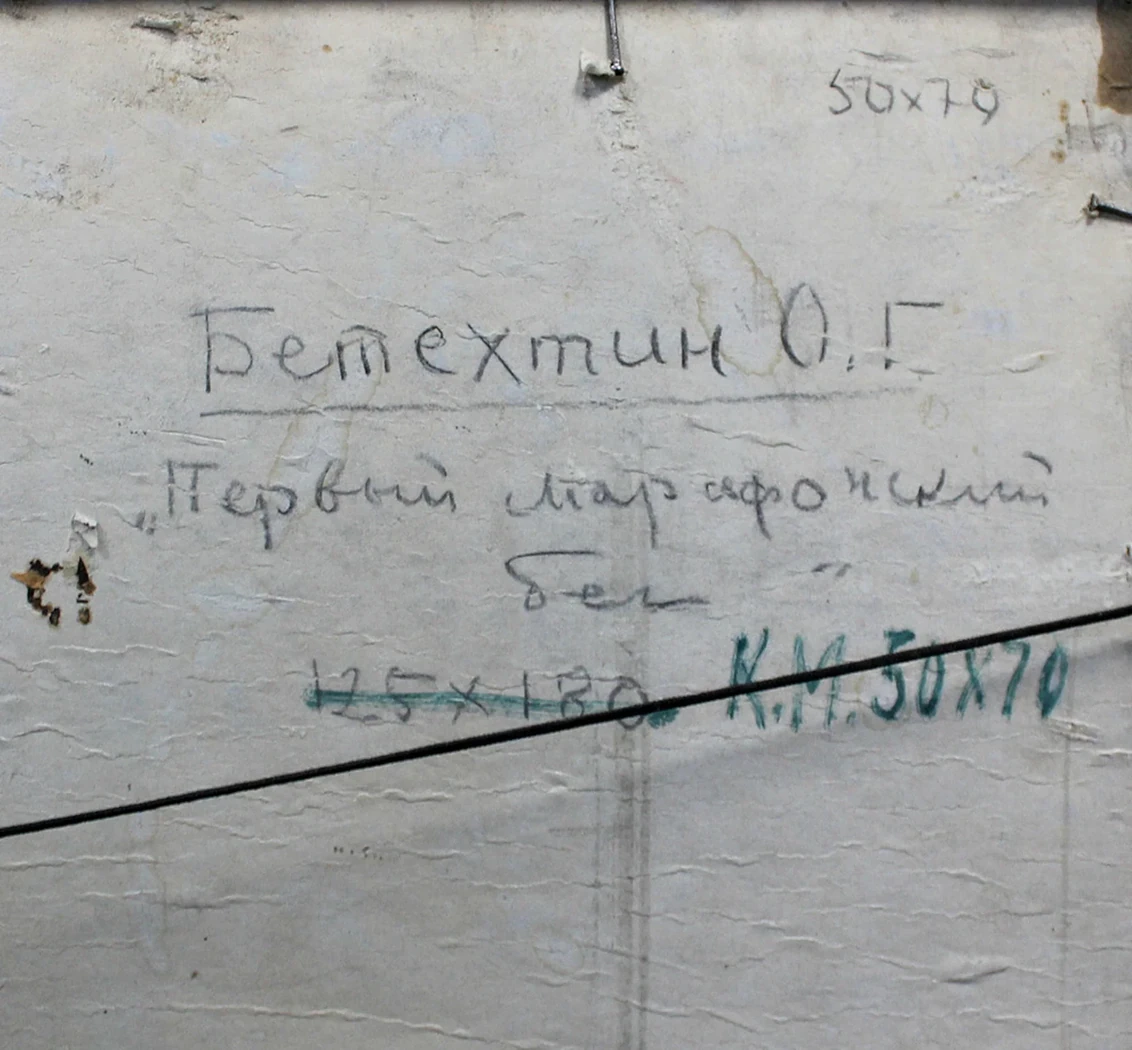 50х70
Бетехтин О.Г
„Первый марафонский
бег"
125х180 К.М.50х70